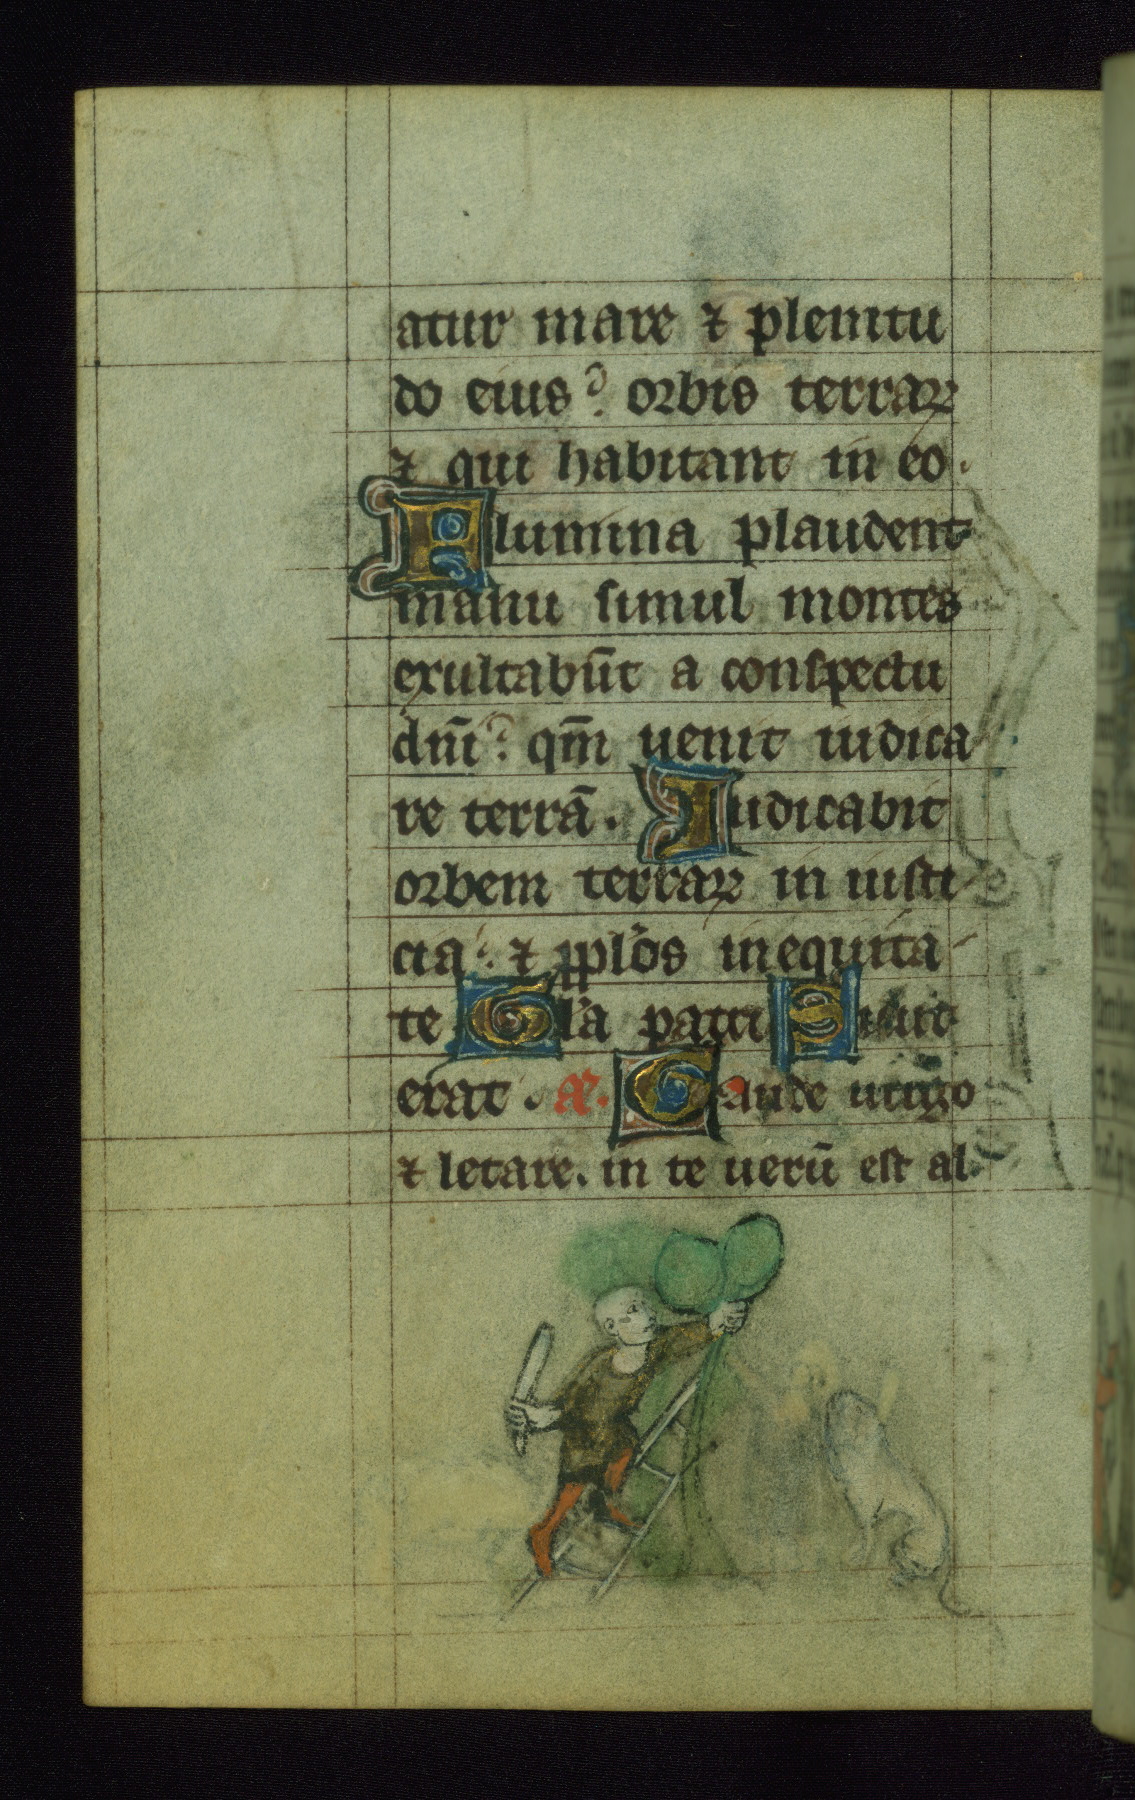 atur mare ⁊ plenitu
do eius? orbis terraꝝ
⁊ qui habitant in eo.
Flumina plaudent
manu simul montes
exultabūt a conspectu
dn̄i? qm̄ uenit iudica
re terrā. Iudicabit
orbem terraꝝ in iusti
cia: ⁊ pplōs inequita
te Gła patri Sicut
erat. A. Gaude uirgo
⁊ letare. in te uerū est al